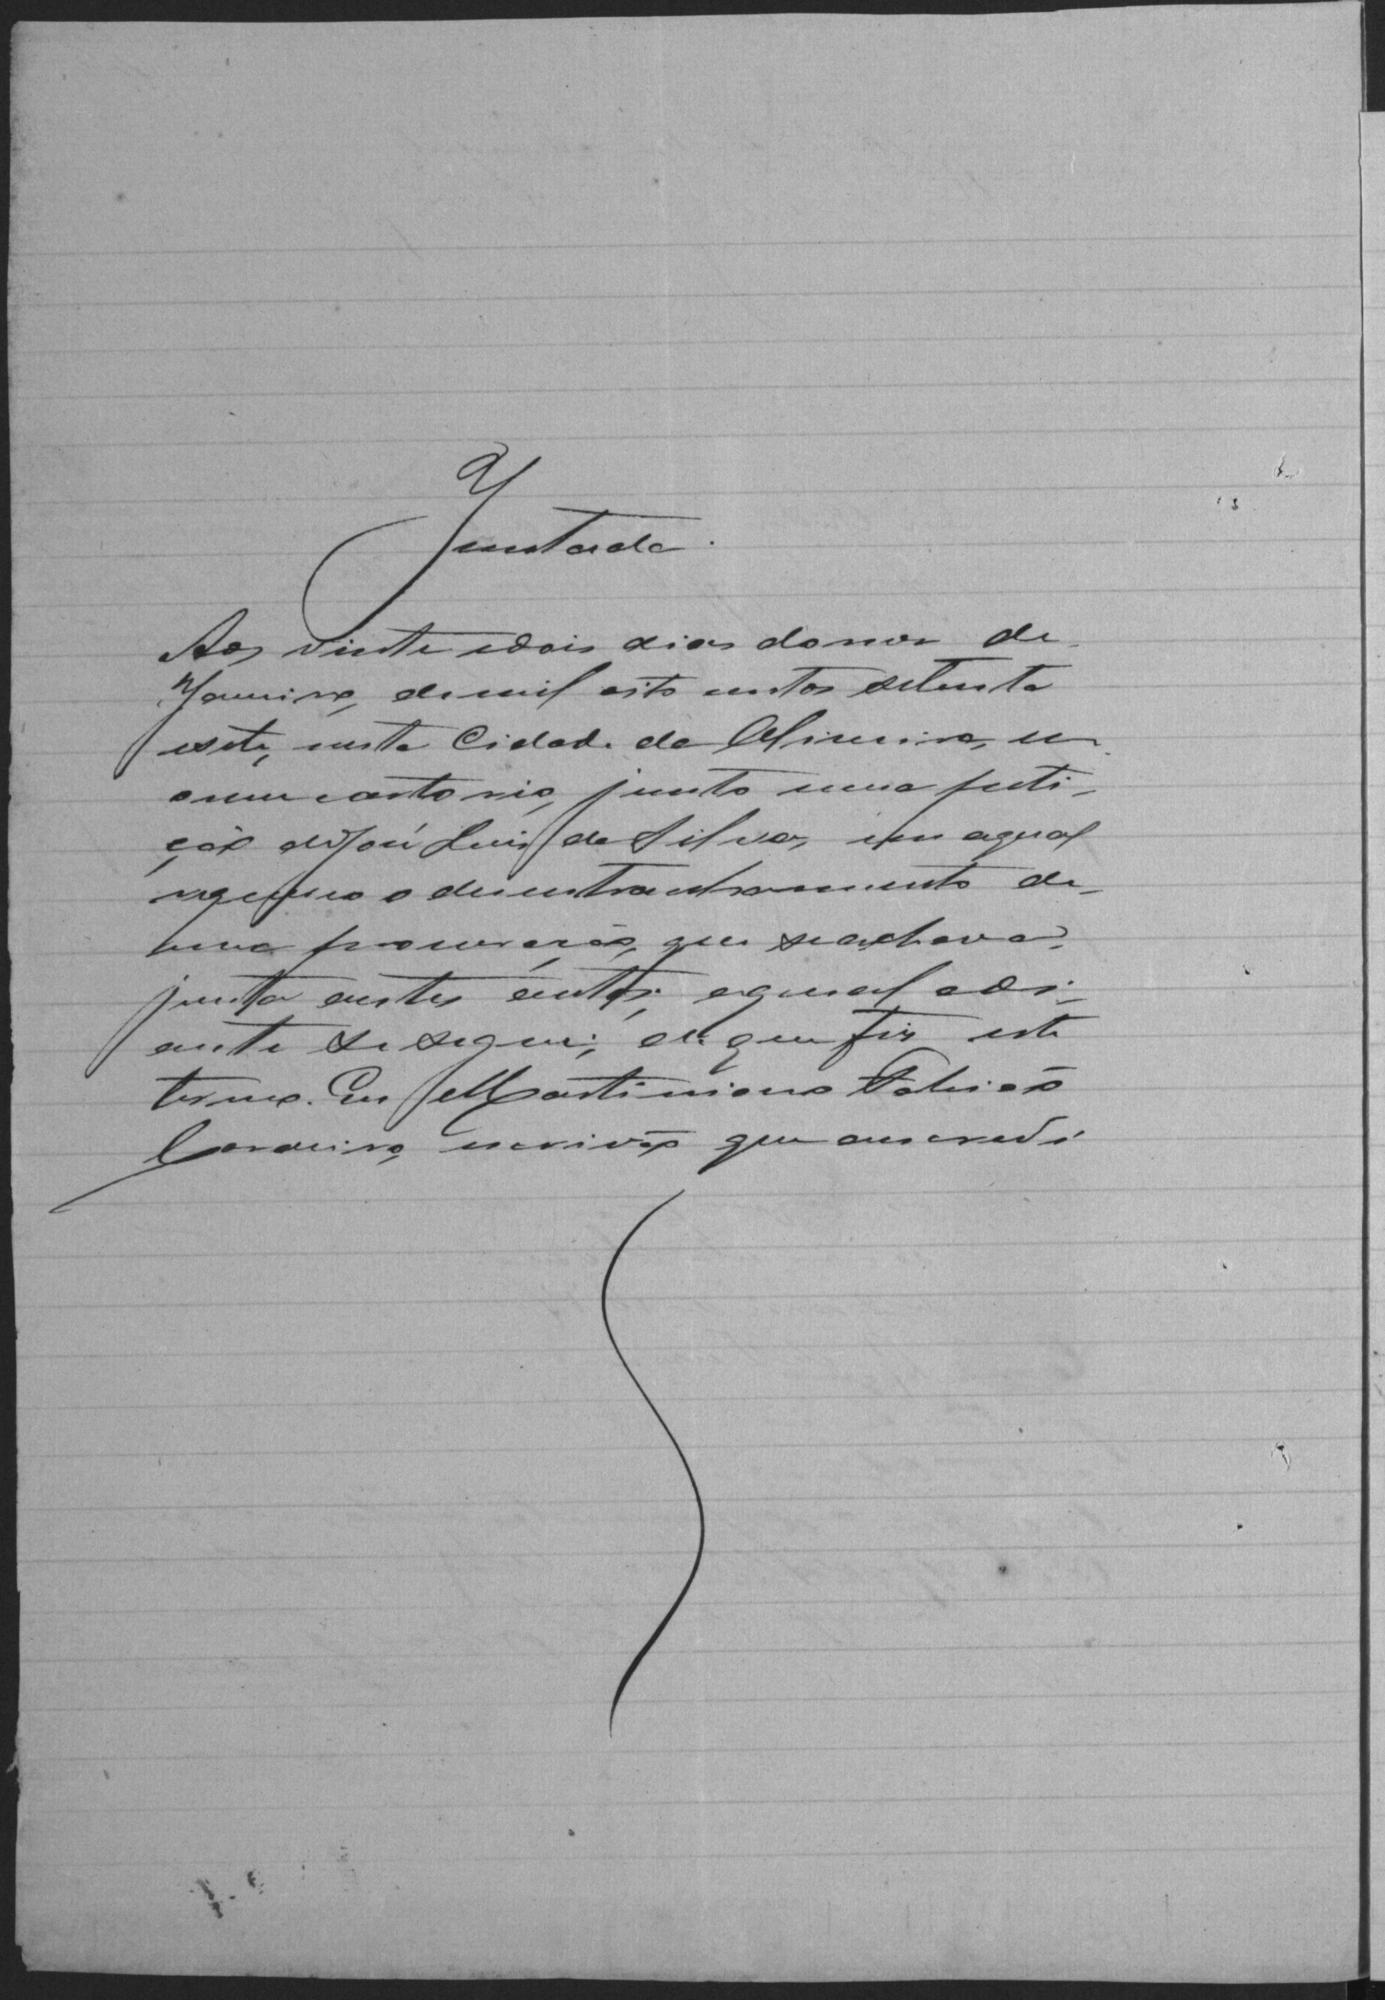 Juntada.
Aos vinte edois dias domes de
Janeiro, demil oito centos setenta
esete, nesta Cidade de Oliveira, em
omeu cartorio, junto uma peti-
ção deJosé Luis da Silva, em aqual
requereo o desentranhamento de
uma procuração, que seachava
junta aestes autos, aqual adi-
ante se segue; do que fiz este
termo. Eu Martiniano
Cordeiro, escrivão que